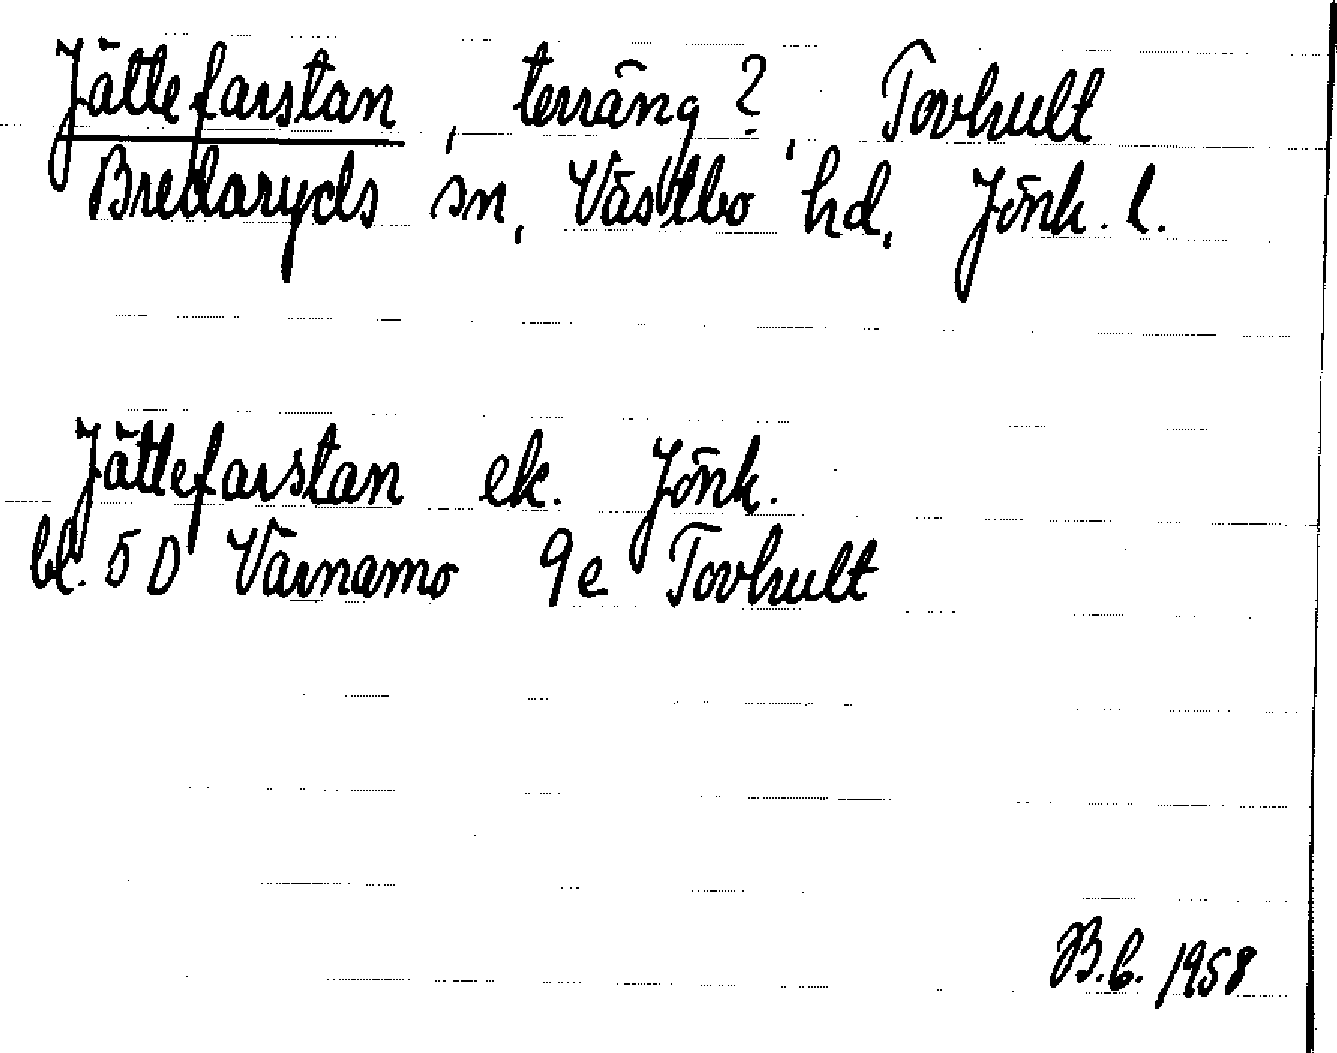 Jättefarstan, terräng?, Tovhult
Bredaryds sn, Västbo hd, Jönk. l.
Jättefarstan ek. Jönk.
bl. 5 D Värnamo 9e Tovhult
B.b. 1958